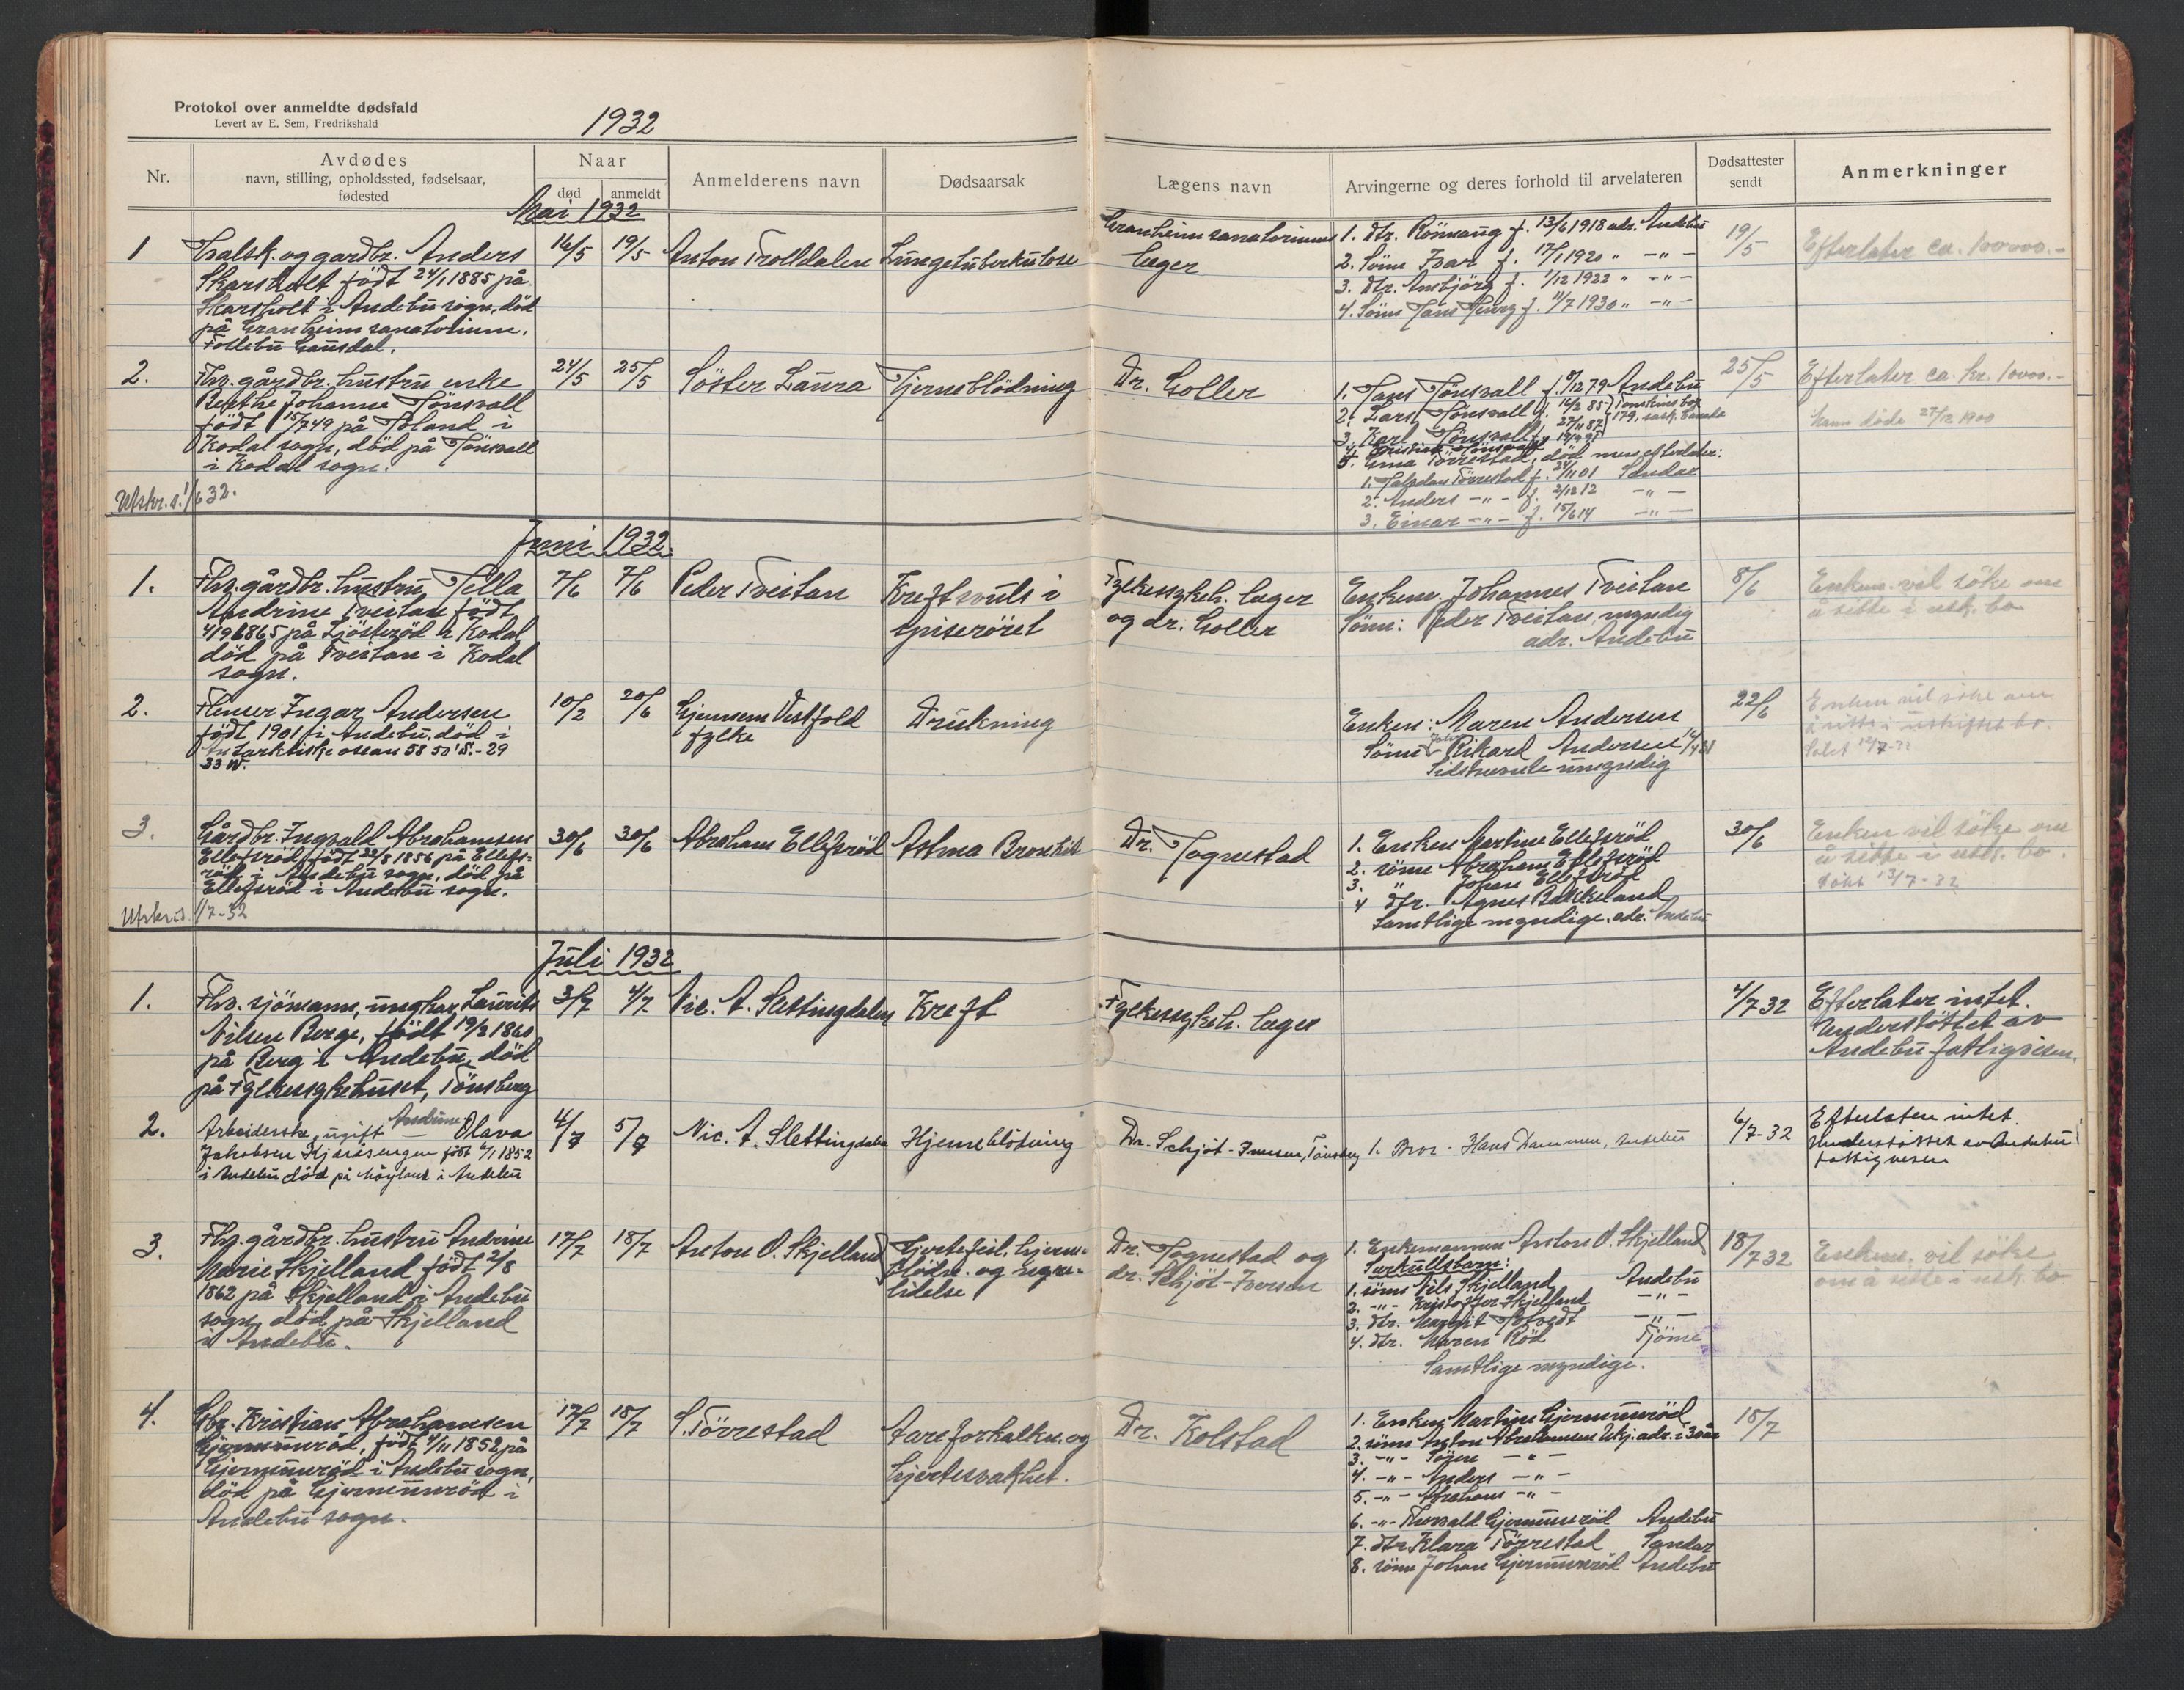 Protokol over anmeldte dødsfald
Levert av E. Sem, Fredrikshald
1932
Nr.
Avdødes
navn, stilling, opholdssted, fødselsaar,
fødested
Naar
død
anmeldt
Anmelderens navn
Dødsaarsak
Lægens navn
Arvingerne og deres forhold til arvelateren
Dødsattester
sendt
Anmerkninger
Mai 1932
1
og gardbr. Anders
Skarsholt født 24/1 1885 på
Skarsholt i Andebu sogn, død
på Granheim sanatorium,
Follebu Gausdal.
16/5
19/5
Anton Trolldalen
Lungetuberkulose
Granheim sanatoriums
læger
1. dtr. Rönnaug f. 13/6 1918 adr. Andebu
2. Sönn Ivar f. 17/1 1920 " -"-
3. dtr. Ansbjörg f. 1/12 1922 " -"-
4. Sönn Hans Henry f. 11/7 1930 " -"-
19/5
Efterlater ca. 100000.-
2.
Fhv. gårdbr. hustru enke
Berthe Johanne Hönsvall
född 15/7 49 på Holand i
Kodal sogn, död på Hönsvall
i Kodal sogn.
24/5
25/5
Söster Laura
Hjerneblödning
Dr. Goller
1. Hans Hönsvall f. 9/12 79 Andebu
2. Lars Hönsvall f. 14/2 85
3. Karl Hönsvall f. 27/11 87
4. Kristian Hönsvall
5. Gina Törrestad, död men efterlater:
1. Halfdan Törrestad f. 24/11 01 Sandar
2. Anders -"- f. 2/12 12 -"-
3. Einar -"- f. 15/6 14 -"-
25/5
Efterlater ca. kr. 10000.-
Mann døde 27/12 1900
Utskr. s. 1/6 32.
Juni 1932
1.
Fhv. gårdbr. hustru Hella
Andrine Tveitan født
4/9 1865 på Ljösteröd i Kodal,
död på Tveitan i Kodal
sogn.
7/6
7/6
Peder Tveitan
Kreftsvulst i
spiseröret
Fylkessykeh. læger
og dr. Goller
Enkem. Johannes Tveitan
Sönn: Peder Tveitan, myndig
adr. Andebu
8/6
Enkem. vil söke om
å sitte i usk. bo
2.
Flenser Ingar Andersen
född 1901 i Andebu, död i
Antarktiske osean 58 50' S. - 29
33 W.
10/2
20/6
Gjennem Vestfold
fylke
Drukning
Enken: Maren Andersen
Sönn Rikard Andersen
Sistnevnte umyndig
22/6
Enken vil söke om
å sitte i uskiftet bo.
3.
Gårdbr. Ingvald Abrahamsen
Ellefsröd, född 22/8 1856 på Ellefs-
röd i Andebu sogn, död på
Ellefsröd i Andebu sogn.
30/6
30/6
Abraham Ellefsröd
Astma Bronkit
Dr. Tognestad
1. Enken Martine Ellefsröd
2. sönn Abraham Ellefsröd
3. " Johan Ellefsröd
4 dtr. Agnes Bakkeland
Samtlige myndige. adr. Andebu
30/6
Enken vil söke om
å sitte i usk. bo.
Søkt 13/7-32
Utskr. s. 1/7-32
Juli 1932
1.
Fhv. sjömann, ungkar, Laurits
Nilsen Berge, född 19/3 1860
på Berg i Andebu, död
på Fylkessykehuset, Tönsberg
3/7
4/7
Nic. A. Slettingdalen
Kreft
Fylkessykeh. læger
4/7 32
Efterlater intet.
Understöttet av
Andebu fattigvesen.
2.
Arbeiderske, ugift Andrine Olava
Jakobsen Kjæråsengen født 4/1 1852
i Andebu død på Möyland i Andebu
4/7
5/7
Nic. A. Slettingdalen
Hjerneblödning
Dr. Schjöt-Iversen, Tönsberg
1. Bror - Hans Dammen, Andebu
6/7-32
Efterlater intet.
Understöttet av Andebu
fattigvesen
3.
Fhv. gårdbr. hustru Andrine
Marie Skjelland född 2/8
1862 på Skjelland i Andebu
sogn, död på Skjelland
i Andebu.
17/7
18/7
Anton O. Skjelland
Hjertefeil, hjerne-
blödn. og nyre-
lidelse
Dr. Tognestad og
dr. Schjöt-Iversen
1. Enkemannen Anton O. Skjelland
Særkullsbarn:
1. sönn Nils Skjelland Andebu
2. -"- Kristoffer Skjelland -"-
3. dtr. Margit Hotvedt -"-
4. dtr. Maren Röd Tjöme
Samtlige myndige.
18/7 32
Enkem. vil söke
om å sitte i usk. bo
4.
Gbr. Kristian Abrahamsen
Gjermunröd, född 4/11 1852 på
Gjermunröd i Andebu sogn,
död på Gjermunröd i
Andebu sogn.
17/7
18/7
S. Törrestad
Aareforkalkn. og
hjertesvakhet.
Dr. Kolstad
1. Enken Martine Gjermunröd
2. sönn Anton Abrahamsen Ukj. adr. i 30 år
3. -"- Sören -"-
4. -"- Anders -"-
5. -"- Abraham -"-
6. -"- Thorvald Gjermunröd Andebu
7. dtr. Klara Törrestad Sandar
8. sönn Johan Gjermunröd Andebu
18/7